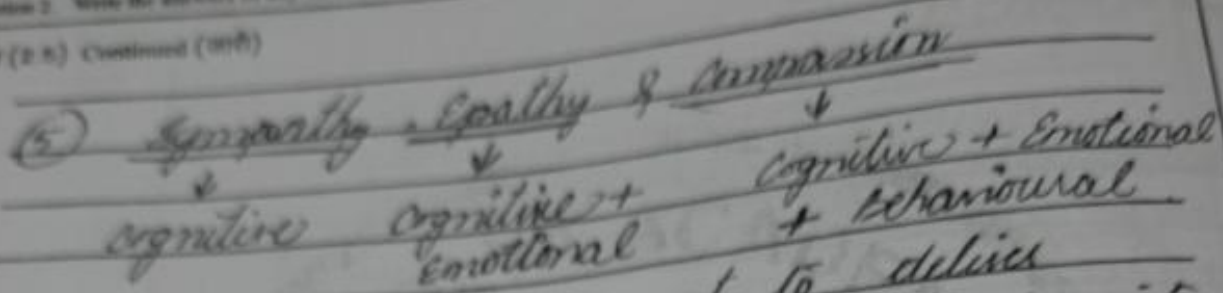 Continued (जारी)
(5) Sympathy, Epathy & Compassion
↓ ↓ ↓
cognitive cognitive + Cognitive + Emotional
Emotional + Behavioural
to delives